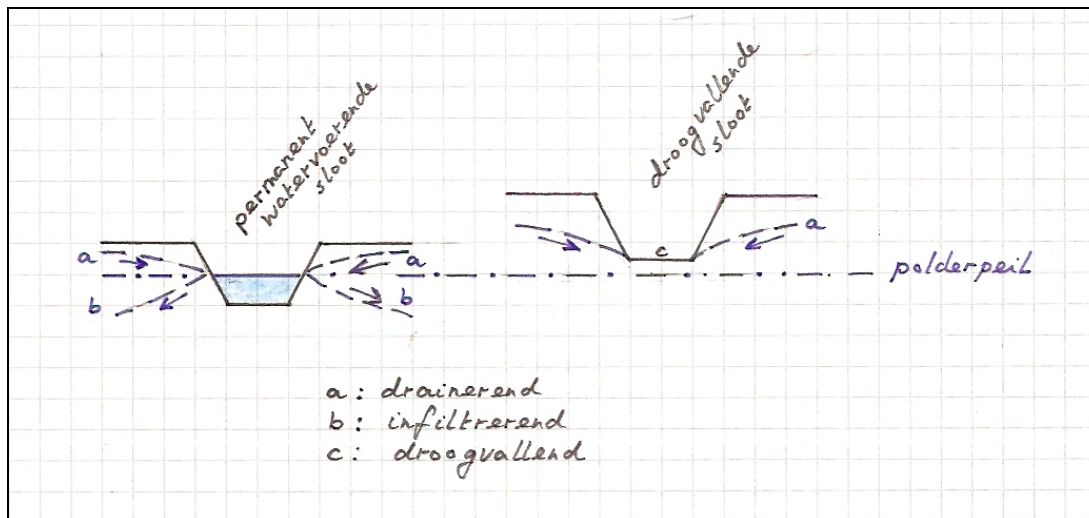 permanent
watervoerende
sloot
droogvallende
sloot
a
a
a
b
b
c
polderpeil
a: drainerend
b: infiltrerend
c: droogvallend